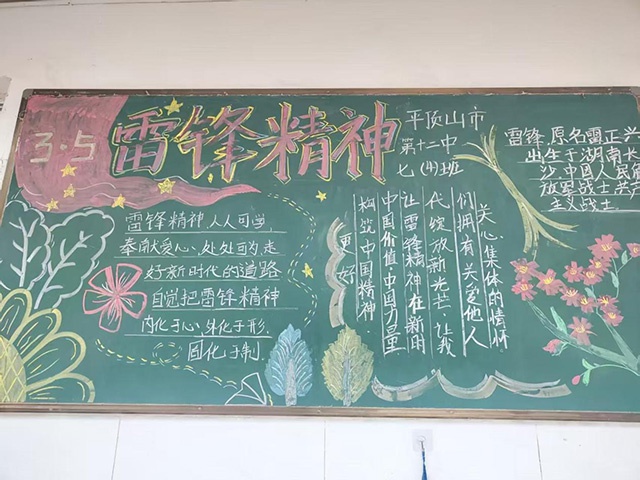 3·5
雷锋精神
平顶山市
第十二中
七(4)班
雷锋精神,人人可学,
奉献爱心,处处可为.走
好新时代的道路
自觉把雷锋精神
内化于心,外化于形,
固化于制.
更好
构筑中国精神.
中国价值.中国力量
让雷锋精神在新时
代绽放新光芒.让我
们拥有关爱他人
关心集体的情怀.
雷锋,原名雷正兴
出生于湖南长
沙,中国人民解
放军战士共产
主义战士